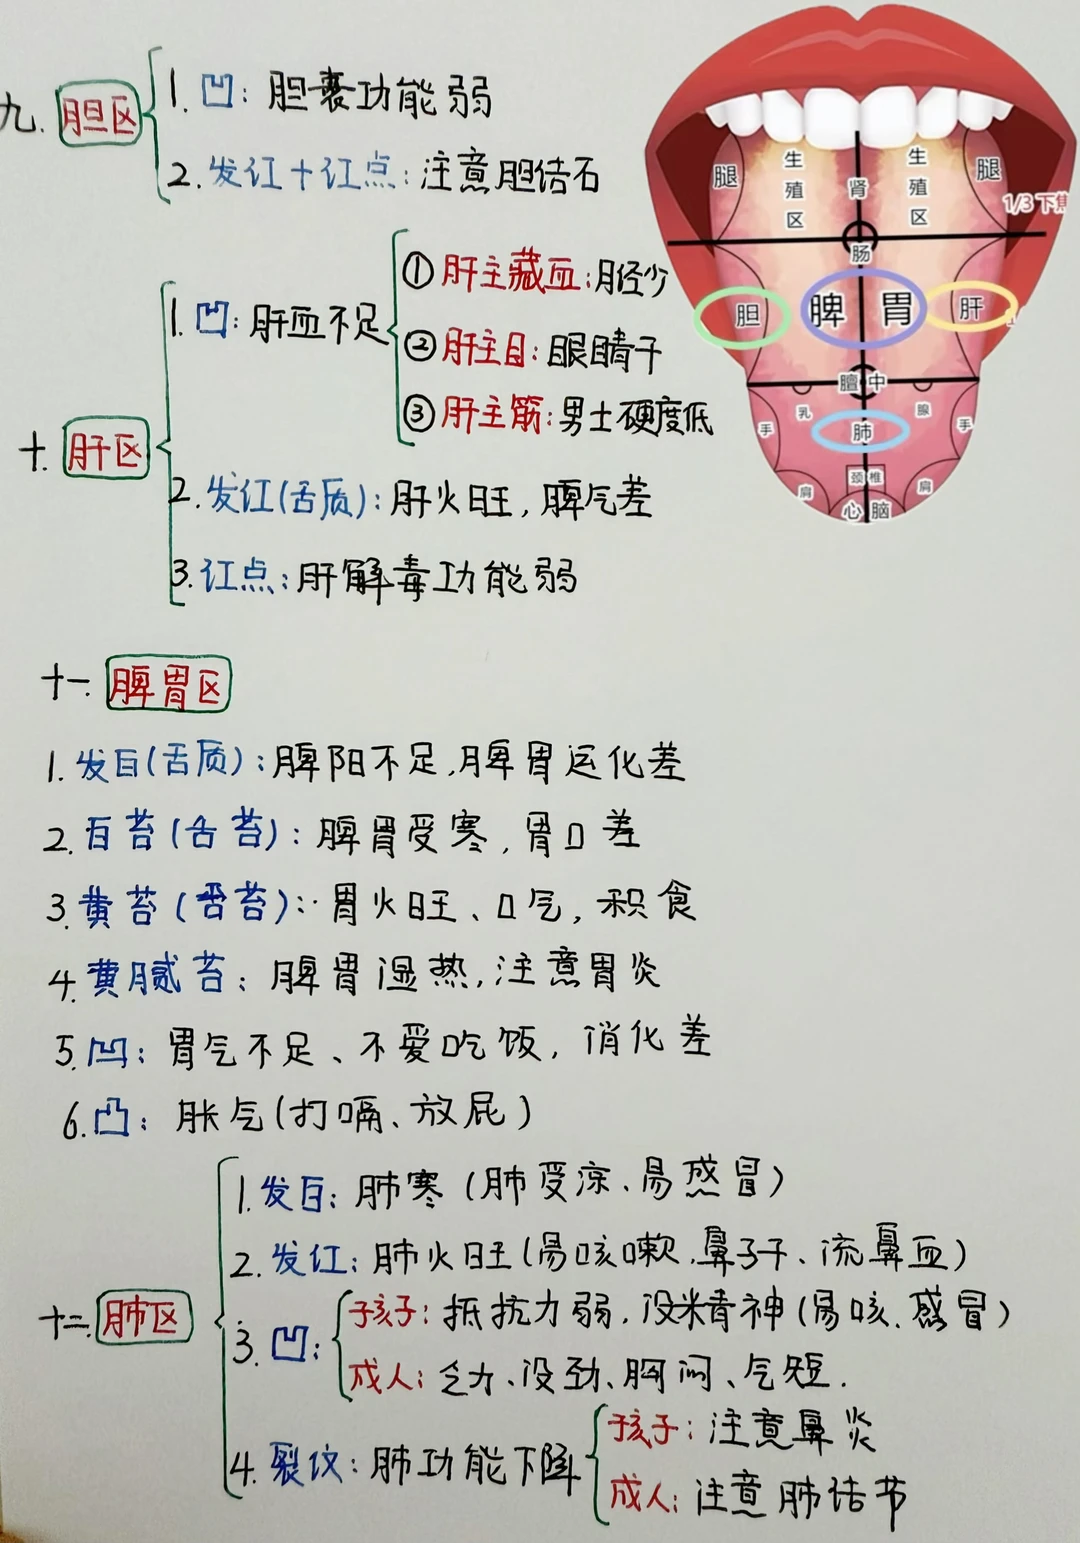 九. 胆区
1. 凹: 胆囊功能弱
2. 发红+红点: 注意胆结石
十. 肝区
1. 凹: 肝血不足
① 肝主藏血: 月经少
② 肝主目: 眼睛干
③ 肝主筋: 男士硬度低
2. 发红(舌质): 肝火旺, 脾气差
3. 红点: 肝解毒功能弱
腿 生殖区 肾 生殖区 腿
1/3 下焦
肠
胆 脾 胃 肝
膻中
乳 腺
手 肺 手
颈椎
肩 肩
心 脑
十一. 脾胃区
1. 发白(舌质): 脾阳不足, 脾胃运化差
2. 白苔(舌苔): 脾胃受寒, 胃口差
3. 黄苔(舌苔): 胃火旺、口气, 积食
4. 黄腻苔: 脾胃湿热, 注意胃炎
5. 凹: 胃气不足、不爱吃饭, 消化差
6. 凸: 胀气(打嗝、放屁)
十二. 肺区
1. 发白: 肺寒(肺受凉、易感冒)
2. 发红: 肺火旺(易咳嗽、鼻子干、流鼻血)
3. 凹:
孩子: 抵抗力弱, 没精神(易咳、感冒)
成人: 乏力、没劲、胸闷、气短.
4. 裂纹: 肺功能下降
孩子: 注意鼻炎
成人: 注意肺结节